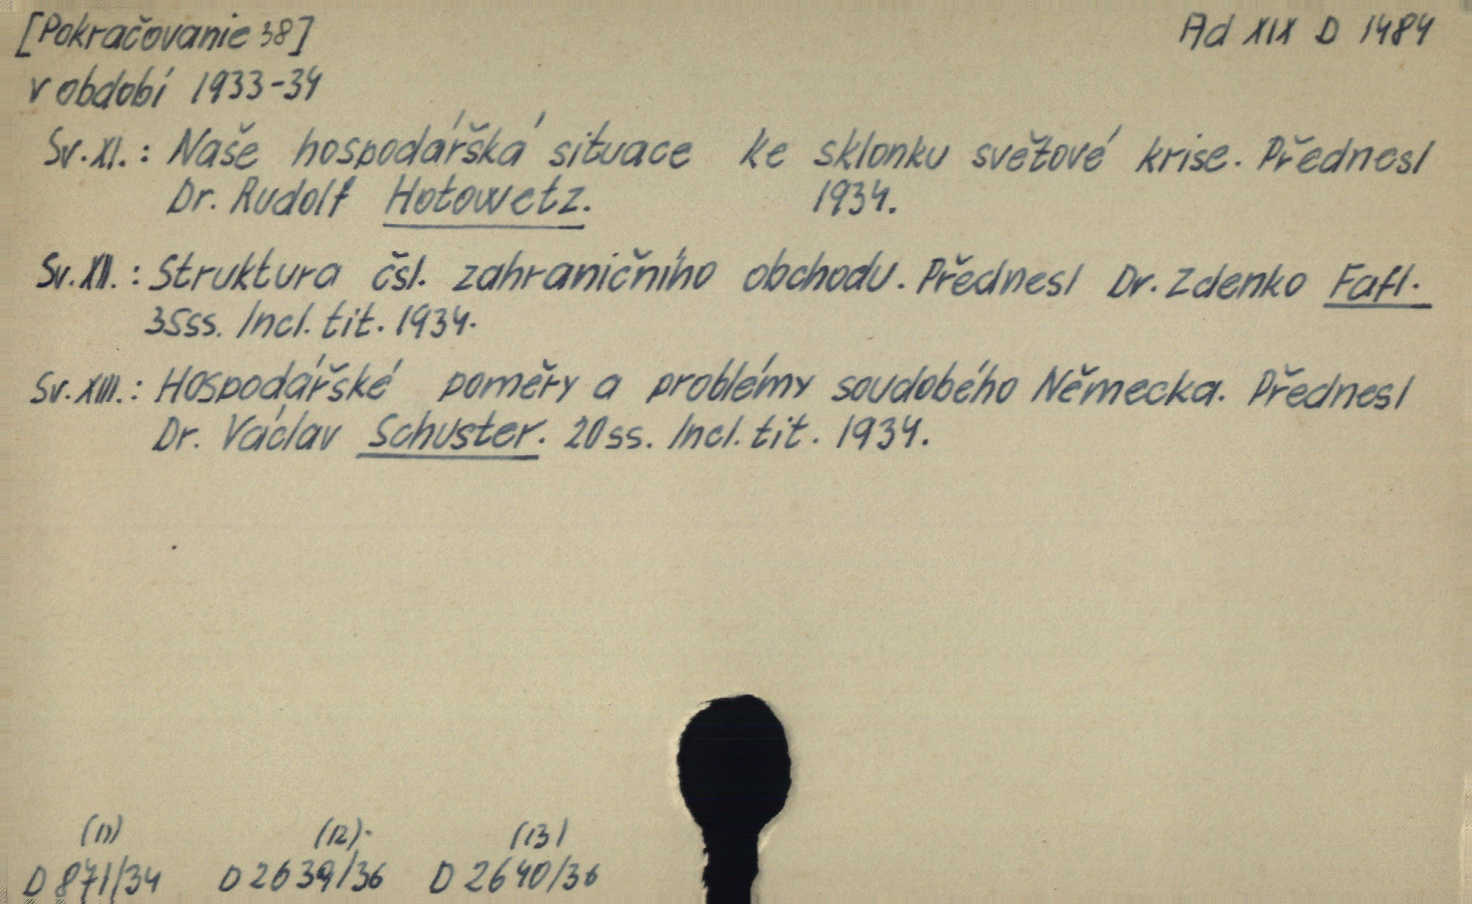 [Pokračovanie 38] Ad XIX D 1484
v období 1933-34
Sv. XI.: Naše hospodářská situace ke sklonku světové krise. Přednesl
Dr. Rudolf Hotowetz. 1934.
Sv. XII.: Struktura čsl. zahraničního obchodu. Přednesl Dr. Zdenko Fafl.
35ss. Incl. tit. 1934.
Sv. XIII.: Hospodářské poměry a problémy soudobého Německa. Přednesl
Dr. Václav Schuster. 20ss. Incl. tit. 1934.
(11) (12). (13)
D 871/34 D 2639/36 D 2640/36